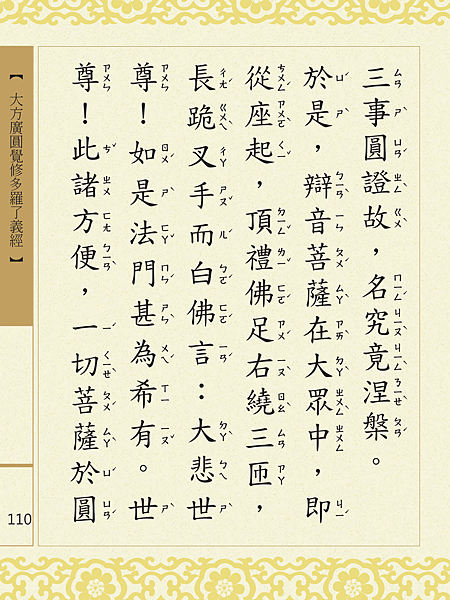 三事圓證故，名究竟涅槃。
於是，辯音菩薩在大眾中，即
從座起，頂禮佛足右繞三匝，
長跪叉手而白佛言：大悲世
尊！如是法門甚為希有。世
尊！此諸方便，一切菩薩於圓
【大方廣圓覺修多羅了義經】
110